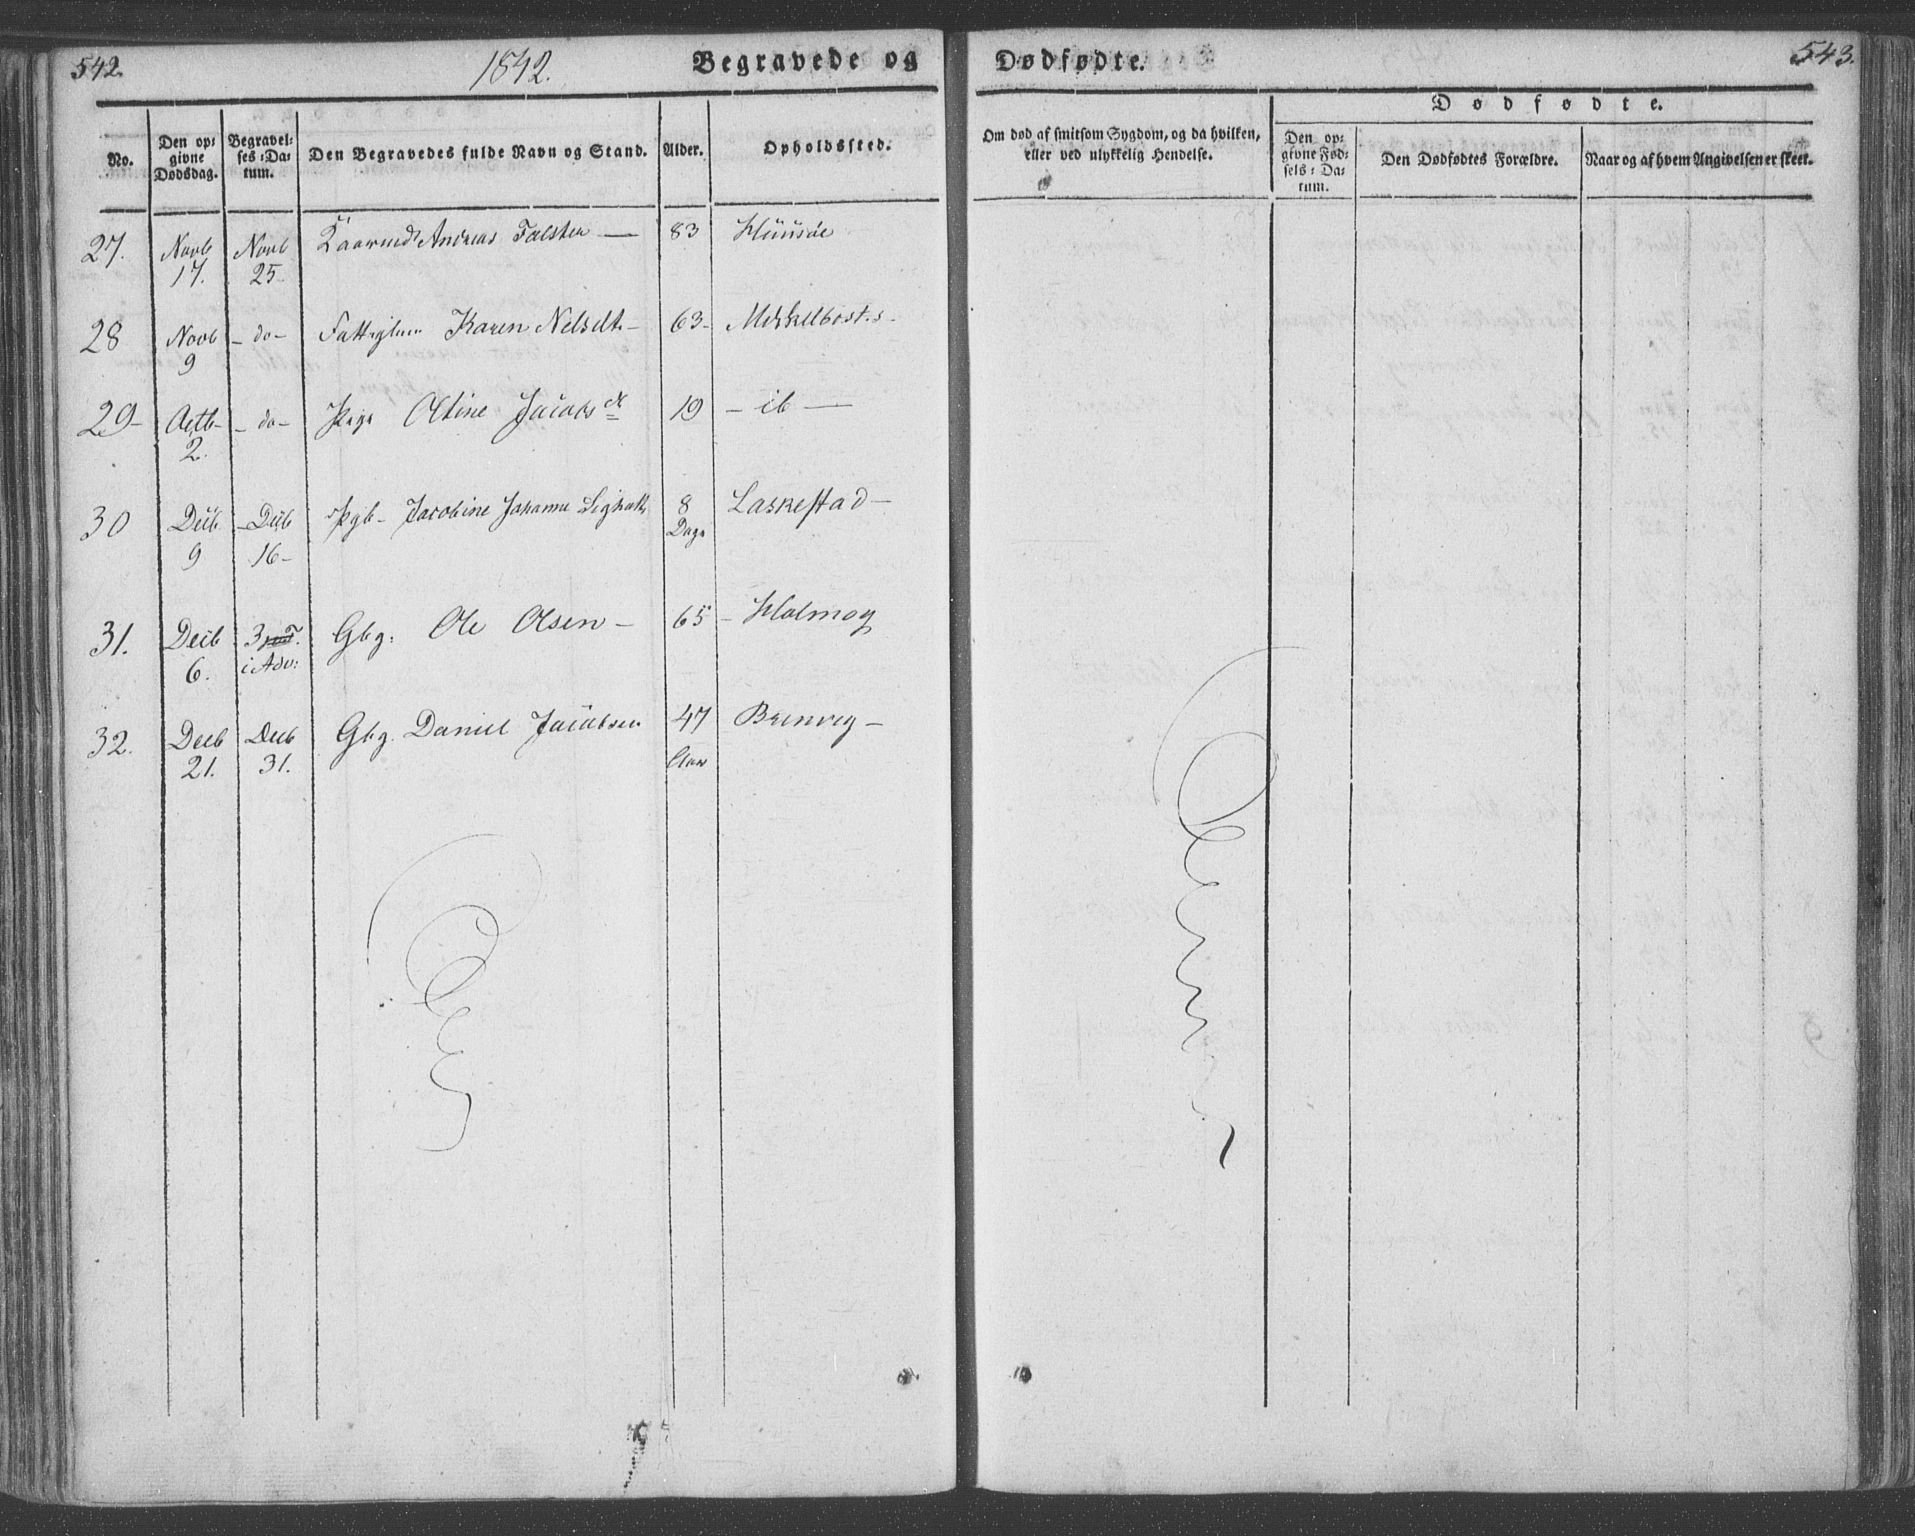 542.
1842.
Begravede og
Dødfødte.
543.
No.
Den op-
givne
Dødsdag.
Begravel-
ses-Da-
tum.
Den Begravedes fulde Navn og Stand.
Alder.
Opholdssted.
Om død af smitsom Sygdom, og da hvilken,
eller ved ulykkelig Hendelse.
Dødfødte.
Den op-
givne Fød-
sels-Da-
tum.
Den Dødfødtes Forældre.
Naar og af hvem Angivelsen er skeet.
27. Novb 17. Novb 25- Andreas Falster — 83
28 Novb 9 - do- Karen Nelsdt.- 63-
29- Octb- 2. - do- Pige Oline Jacobsd 19 - ib —
30 Dcb 9 - Dcb 16- Jacobine Johanna 8 Dage Laskestad -
31. Decb 6. 3 i Adv: Gbg. Ole Olsen - 65 - Holmog
32. Decb 21. Decb 31. Gbg. Daniel Jacobsen 47 Aar